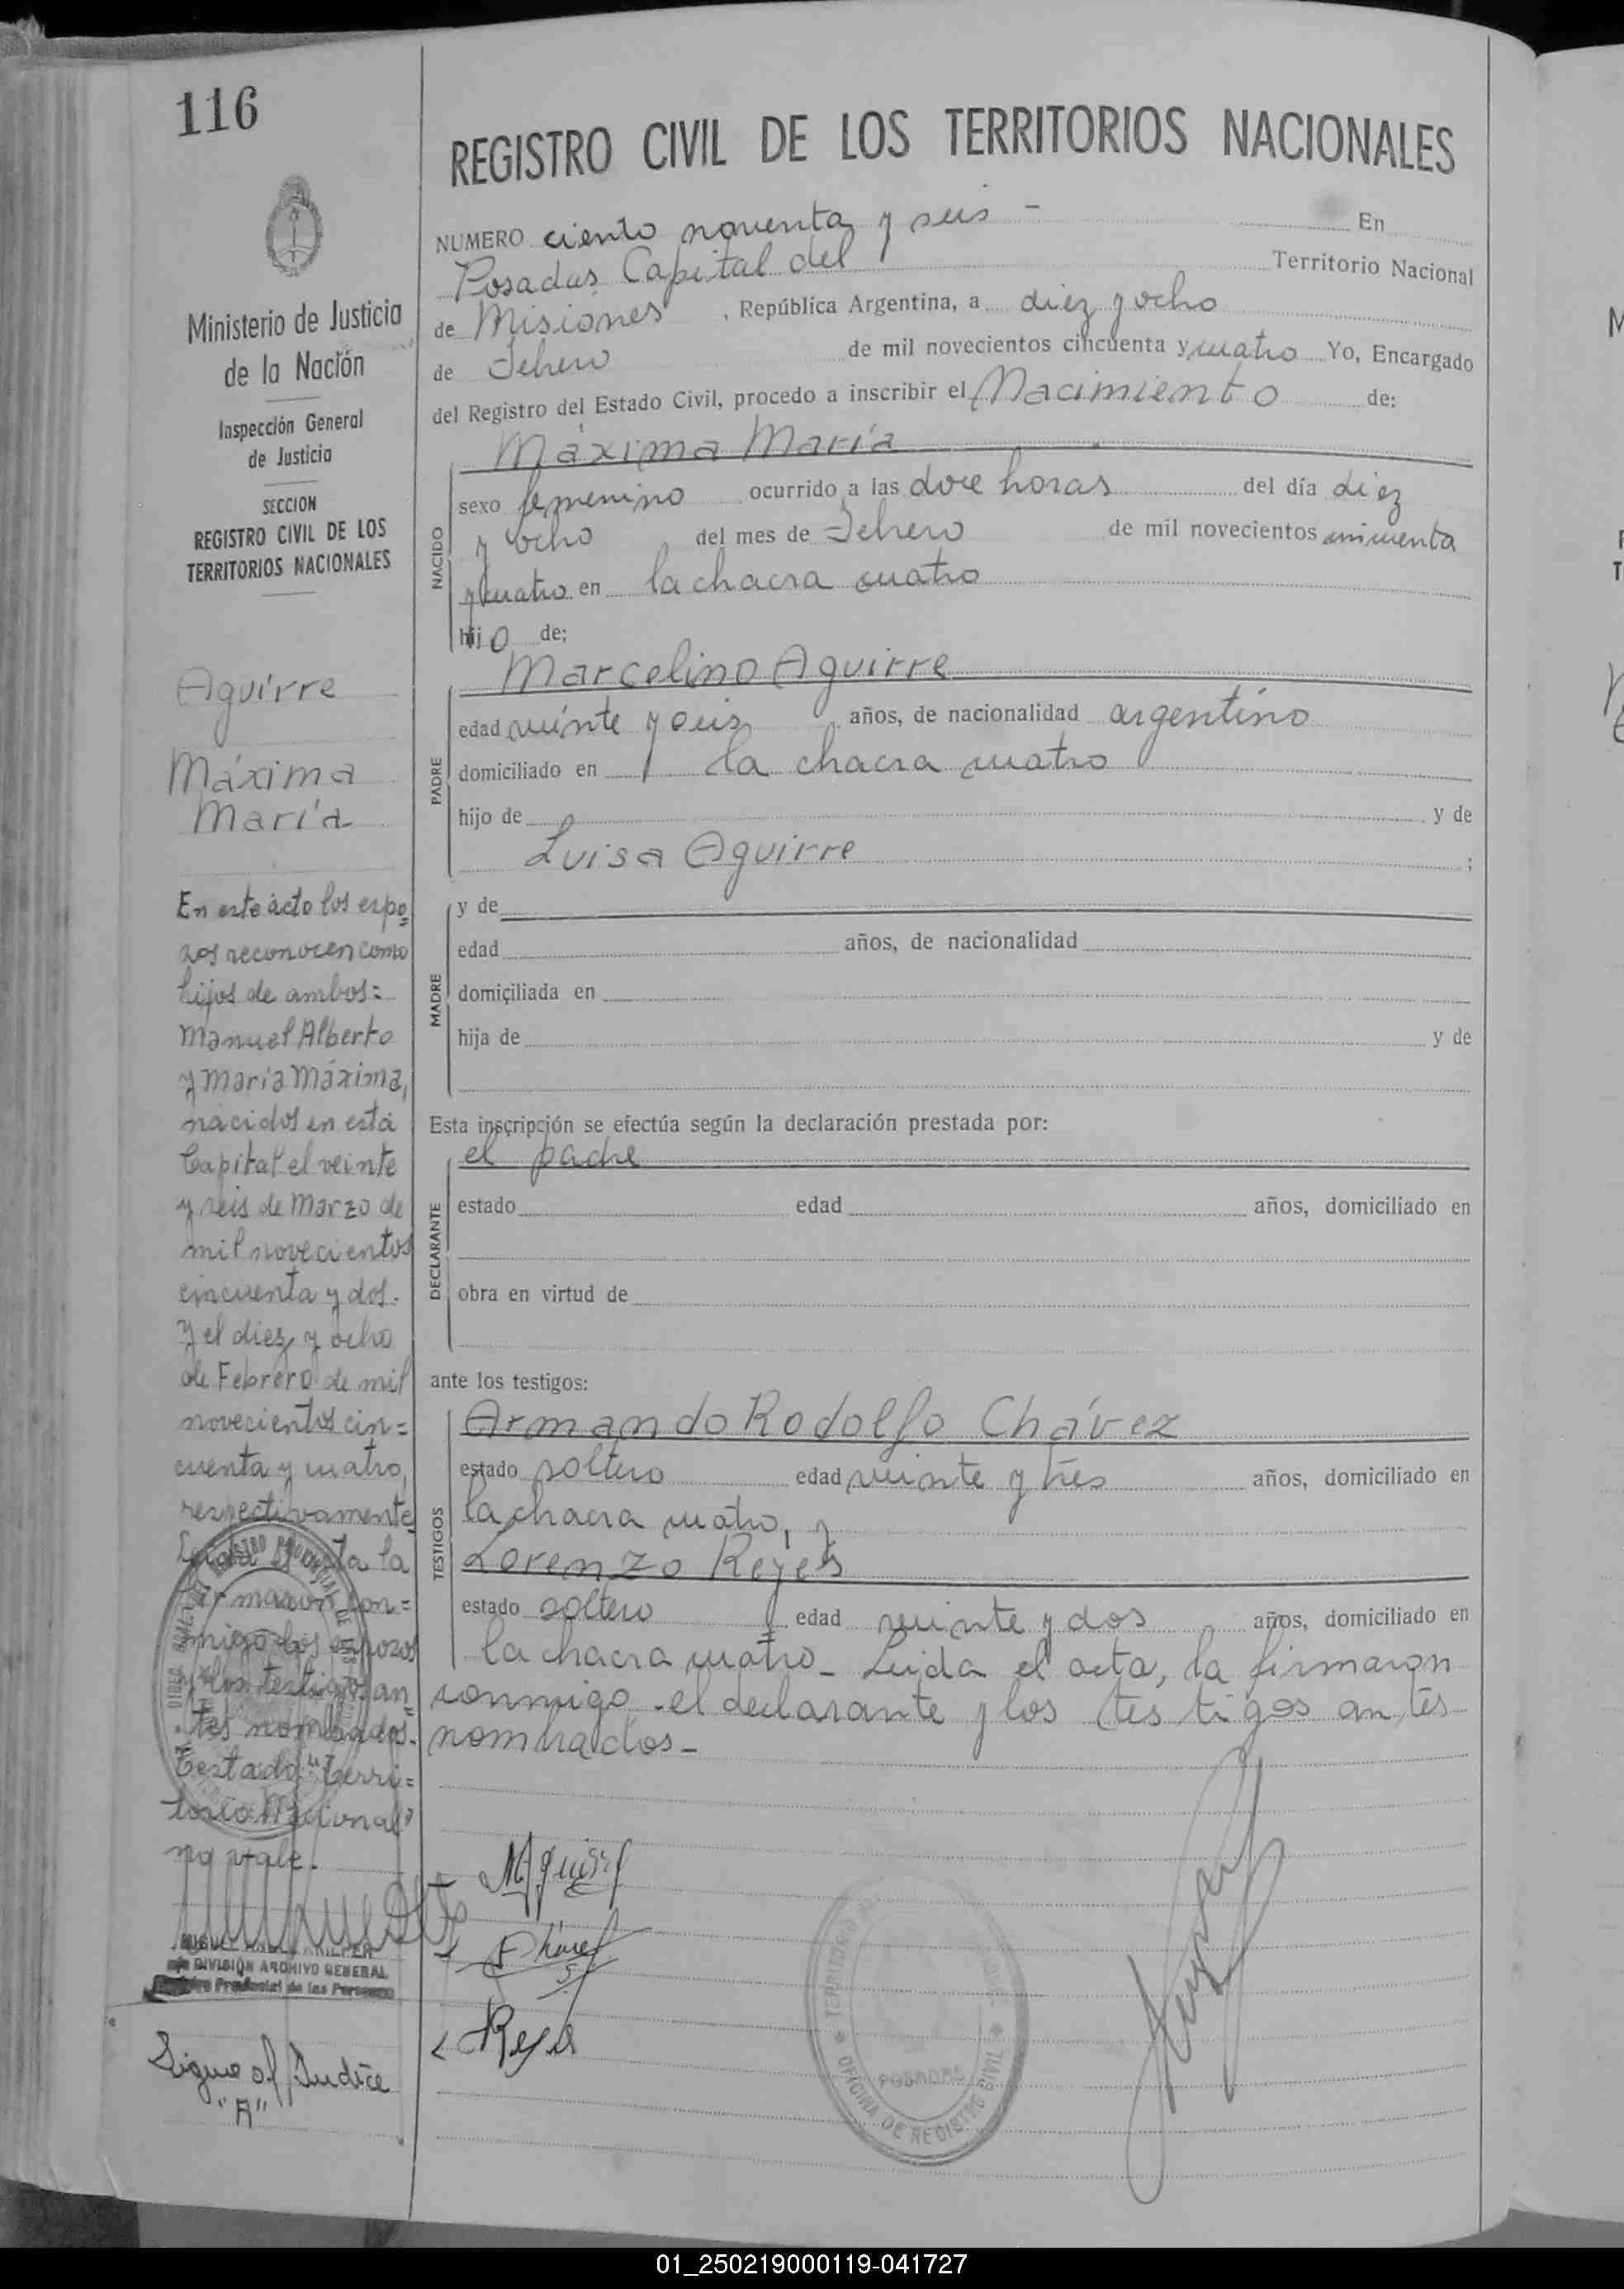 116
REGISTRO CIVIL DE LOS TERRITORIOS NACIONALES
NUMERO ciento noventa y seis - En
Posadas Capital del Territorio Nacional
de Misiones, República Argentina, a diez y ocho
de Febrero de mil novecientos cincuenta y cuatro Yo, Encargado
del Registro del Estado Civil, procedo a inscribir el Nacimiento de:
NACIDO
Máxima María
sexo femenino ocurrido a las doce horas del día diez
y ocho del mes de Febrero de mil novecientos cincuenta
y cuatro en la chacra cuatro
hijo de:
PADRE
Marcelino Aguirre
edad veinte y seis años, de nacionalidad argentino
domiciliado en la chacra cuatro
hijo de y de
Luisa Aguirre ;
MADRE
y de
edad años, de nacionalidad
domiciliada en
hija de y de
Esta inscripción se efectúa según la declaración prestada por:
DECLARANTE
el padre
estado edad años, domiciliado en
obra en virtud de
ante los testigos:
TESTIGOS
Armando Rodolfo Chávez
estado soltero edad veinte y tres años, domiciliado en
la chacra cuatro, y
Lorenzo Reyes
estado soltero edad veinte y dos años, domiciliado en
la chacra cuatro - Leida el acta, la firmaron
conmigo - el declarante y los testigos antes
nombrados -
Ministerio de Justicia
de la Nación
Inspección General
de Justicia
SECCION
REGISTRO CIVIL DE LOS
TERRITORIOS NACIONALES
Aguirre
Máxima
María
En este acto los espo=
sos reconocen como
hijos de ambos:
Manuel Alberto
y María Máxima,
nacidos en esta
Capital el veinte
y seis de Marzo de
mil novecientos
cincuenta y dos.
Y el diez y ocho
de Febrero de mil
novecientos cin=
cuenta y cuatro,
respectivamente.
Leida el acta la
firmaron con=
migo los esposos
y los testigos an
tes nombrados.
Testado: "Terri=
torio Nacional"
no vale.
DIVISIÓN ARCHIVO GENERAL
Registro Provincial de las Personas
Sigue al Indice
"A"
M Aguirre
Chavez
Reyes
OFICINA DE REGISTRO CIVIL
POSADAS
01_250219000119-041727